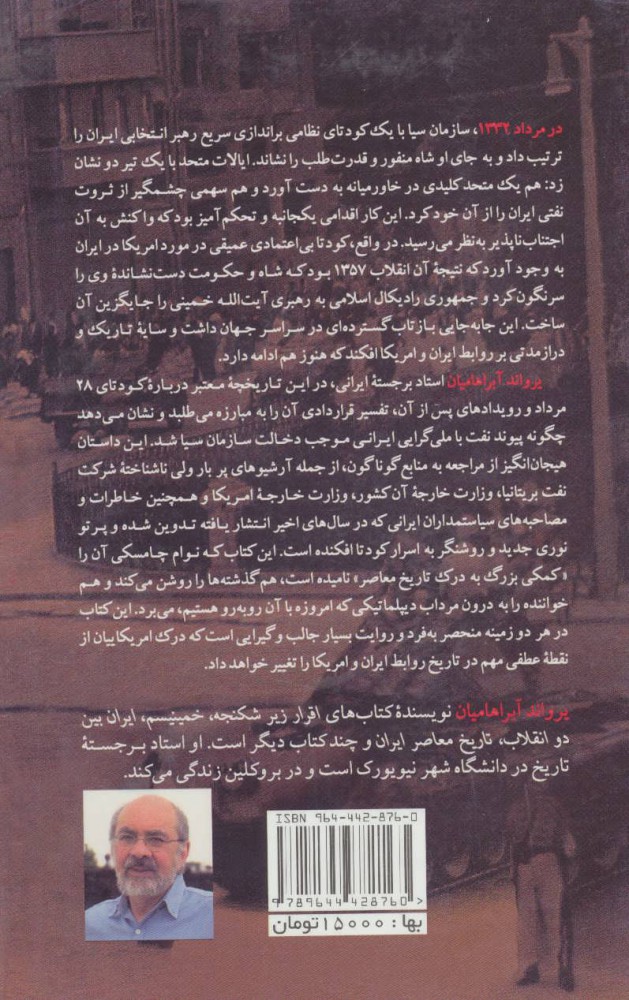 در مرداد ۱۳۳۲، سازمان سیا با یک کودتای نظامی براندازی سریع رهبر انتخابی ایران را
ترتیب داد و به جای او شاه منفور و قدرت‌طلب را نشاند. ایالات متحد با یک تیر دو نشان
زد: هم یک متحد کلیدی در خاورمیانه به دست آورد و هم سهمی چشمگیر از ثروت
نفتی ایران را از آن خود کرد. این کار اقدامی یکجانبه و تحکم‌آمیز بود که واکنش به آن
اجتناب‌ناپذیر به‌نظر می‌رسید. در واقع، کودتا بی‌اعتمادی عمیقی در مورد امریکا در ایران
به وجود آورد که نتیجهٔ آن انقلاب ۱۳۵۷ بود که شاه و حکومت دست‌نشاندهٔ وی را
سرنگون کرد و جمهوری رادیکال اسلامی به رهبری آیت‌الله خمینی را جایگزین آن
ساخت. این جابه‌جایی بازتاب گسترده‌ای در سراسر جهان داشت و سایهٔ تاریک و
درازمدتی بر روابط ایران و امریکا افکند که هنوز هم ادامه دارد.
یرواند آبراهامیان استاد برجستهٔ ایرانی، در این تاریخچهٔ معتبر دربارهٔ کودتای ۲۸
مرداد و رویدادهای پس از آن، تفسیر قراردادی آن را به مبارزه می‌طلبد و نشان می‌دهد
چگونه پیوند نفت با ملی‌گرایی ایرانی موجب دخالت سازمان سیا شد. این داستان
هیجان‌انگیز از مراجعه به منابع گوناگون، از جمله آرشیوهای پر بار ولی ناشناختهٔ شرکت
نفت بریتانیا، وزارت خارجهٔ آن کشور، وزارت خارجهٔ امریکا و همچنین خاطرات و
مصاحبه‌های سیاستمداران ایرانی که در سال‌های اخیر انتشار یافته تدوین شده و پرتو
نوری جدید و روشنگر به اسرار کودتا افکنده است. این کتاب که نوام چامسکی آن را
«کمکی بزرگ به درک تاریخ معاصر» نامیده است، هم گذشته‌ها را روشن می‌کند و هم
خواننده را به درون مرداب دیپلماتیکی که امروزه با آن روبه‌رو هستیم، می‌برد. این کتاب
در هر دو زمینه منحصر به‌فرد و روایت بسیار جالب و گیرایی است که درک امریکاییان از
نقطهٔ عطفی مهم در تاریخ روابط ایران و امریکا را تغییر خواهد داد.
یرواند آبراهامیان نویسندهٔ کتاب‌های اقرار زیر شکنجه، خمینیسم، ایران بین
دو انقلاب، تاریخ معاصر ایران و چند کتاب دیگر است. او استاد برجستهٔ
تاریخ در دانشگاه شهر نیویورک است و در بروکلین زندگی می‌کند.
ISBN 964-442-876-0
9 789644 428760 >
بها: ۱۵۰۰۰ تومان